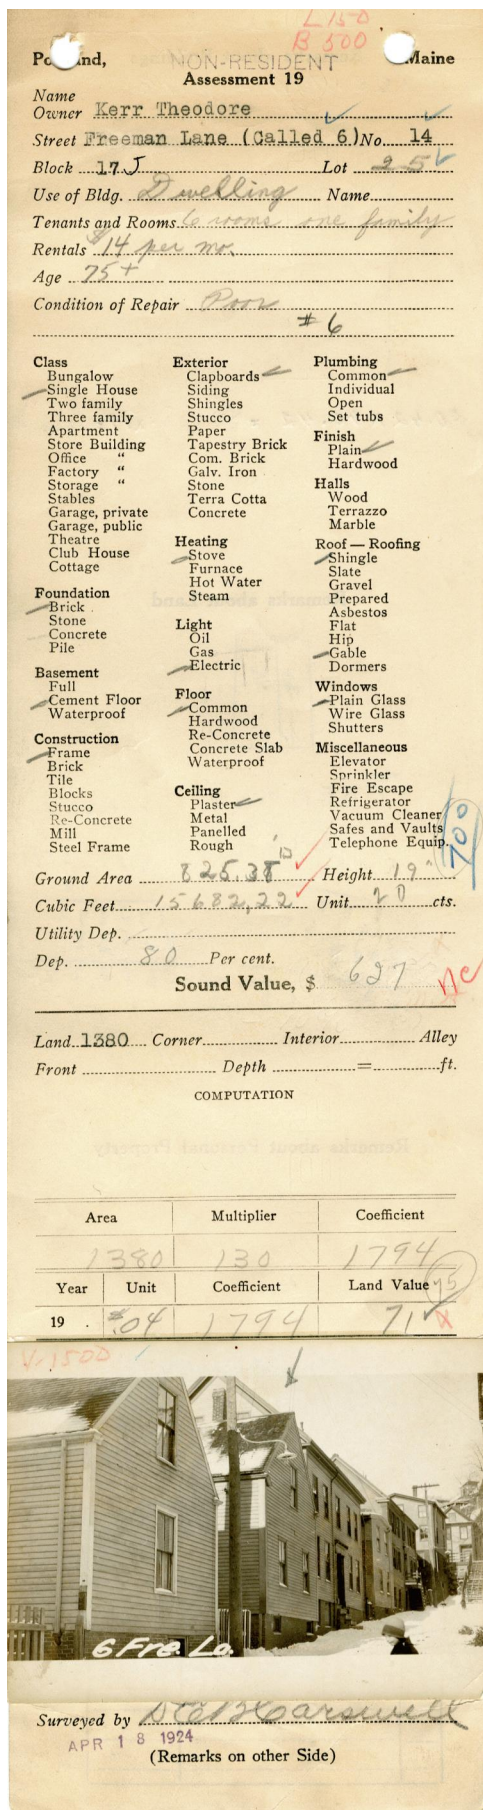 L 150
B 500
Portland, NON-RESIDENT Maine
Assessment 19
Name
Owner Kerr Theodore
Street Freeman Lane (Called 6) No. 14
Block 17 J Lot 25
Use of Bldg. Dwelling Name
Tenants and Rooms 6 rooms one family
Rentals $14 per mo.
Age 75+
Condition of Repair Poor
#6
Class
Bungalow
Single House
Two family
Three family
Apartment
Store Building
Office "
Factory "
Storage "
Stables
Garage, private
Garage, public
Theatre
Club House
Cottage
Foundation
Brick
Stone
Concrete
Pile
Basement
Full
Cement Floor
Waterproof
Construction
Frame
Brick
Tile
Blocks
Stucco
Re-Concrete
Mill
Steel Frame
Exterior
Clapboards
Siding
Shingles
Stucco
Paper
Tapestry Brick
Com. Brick
Galv. Iron
Stone
Terra Cotta
Concrete
Heating
Stove
Furnace
Hot Water
Steam
Light
Oil
Gas
Electric
Floor
Common
Hardwood
Re-Concrete
Concrete Slab
Waterproof
Ceiling
Plaster
Metal
Panelled
Rough
Plumbing
Common
Individual
Open
Set tubs
Finish
Plain
Hardwood
Halls
Wood
Terrazzo
Marble
Roof — Roofing
Shingle
Slate
Gravel
Prepared
Asbestos
Flat
Hip
Gable
Dormers
Windows
Plain Glass
Wire Glass
Shutters
Miscellaneous
Elevator
Sprinkler
Fire Escape
Refrigerator
Vacuum Cleaner
Safes and Vaults
Telephone Equip.
700
Ground Area 825.38 Height 19
Cubic Feet 15682,22 Unit 20 cts.
Utility Dep.
Dep. 80 Per cent.
Sound Value, $ 627
Land 1380 Corner Interior Alley
Front Depth = ft.
COMPUTATION
Area Multiplier Coefficient
1380 130 1794
Year Unit Coefficient Land Value 75
19 . $.04 1794 71
V-1500
6 Fre. La.
Surveyed by D C B Carswell
APR 18 1924
(Remarks on other Side)